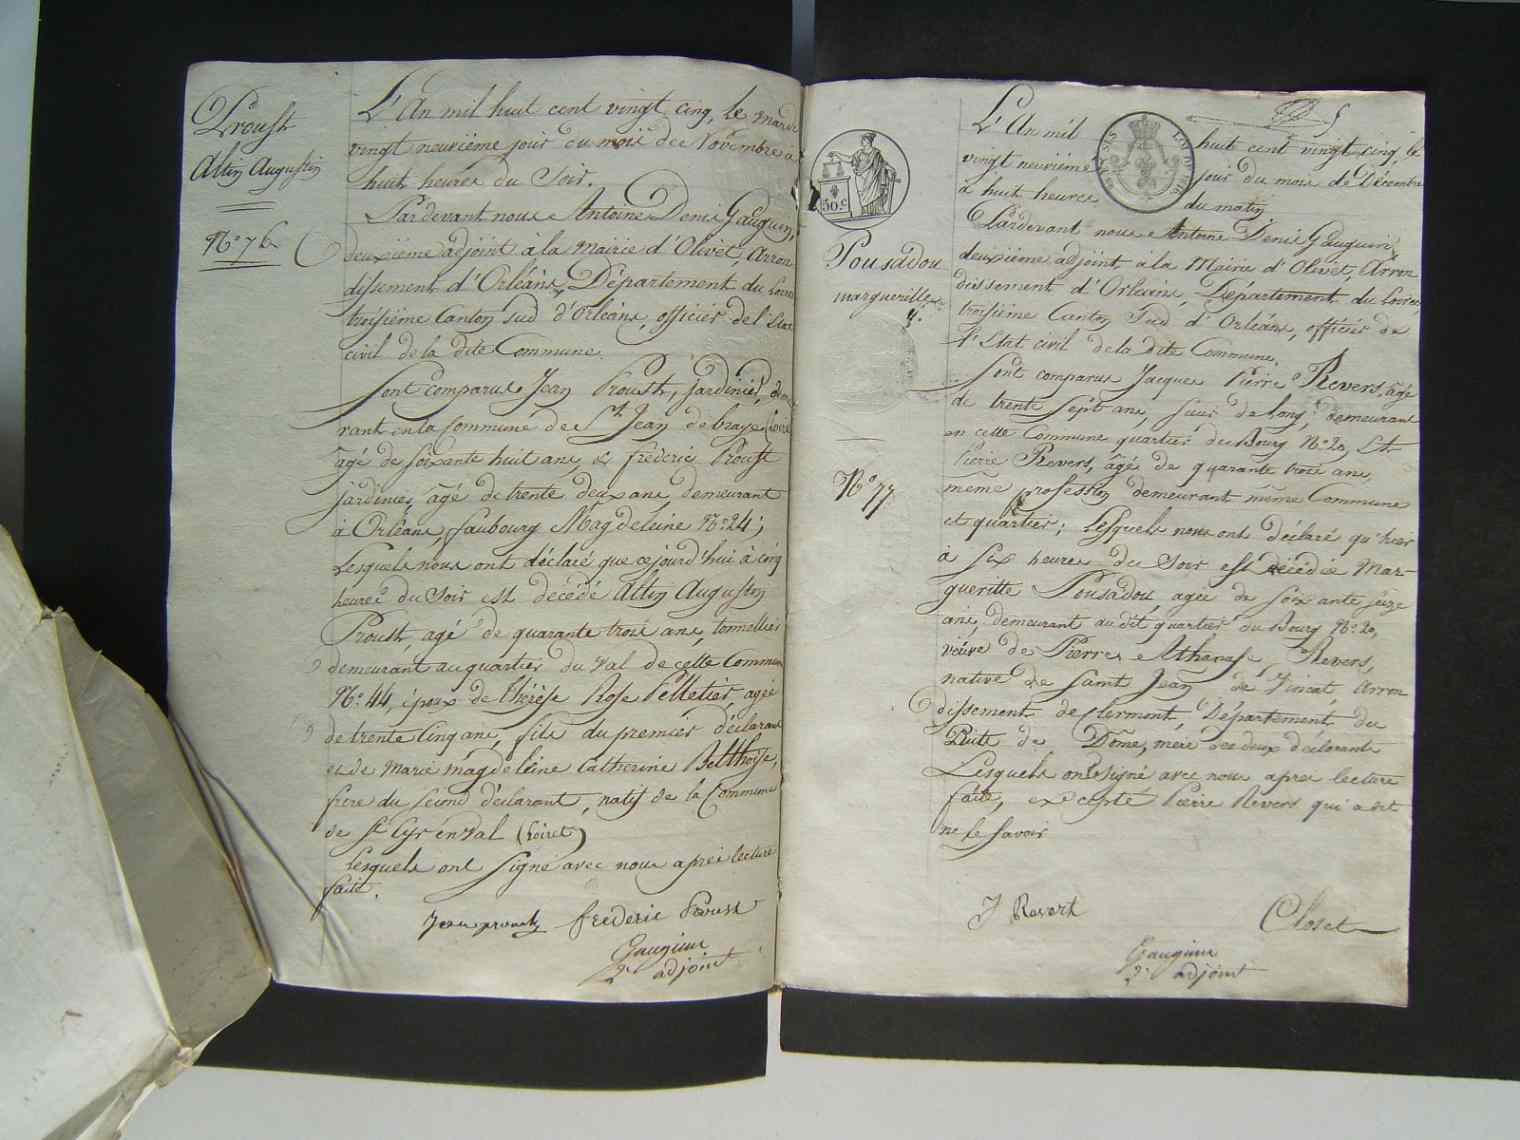 Proust
Altin Augustin
N.o 76
L'An mil huit cent vingt cinq, le mardi
vingt neuvième jour du mois de Novembre à
huit heures du Soir.
Pardevant nous Antoine Denis Gauguin,
deuxième adjoint à la Mairie d'Olivet, Arron
dissement d'Orléans, Département du Loiret
troisième Canton Sud d'Orléans, officier de l'Etat
civil de la dite Commune.
Sont comparus Jean Proust, jardinier, demeu
rant en la Commune de St Jean de braye (Loiret
âgé de soixante huit ans, & fréderic Proust
jardinier, âgé de trente deux ans, demeurant
à Orléans, faubourg Magdeleine N.o 24;
Lesquels nous ont déclaré que cejourd'hui à cinq
heures du Soir est décédé Altin Augustin
Proust, agé de quarante trois ans, tonnellier
demeurant au quartier du Val de cette Commune
N.o 44, époux de thérèse Rose Pelletier, agée
de trente cinq ans, fils du premier déclarant
et de Marie magdeleine Catherine Belthoise,
frere du Second déclarant, natif de la Commune
de St Cyr en Val (Loiret)
Lesquels ont Signé avec nous après lecture
faite.
Jean proust frederic Proust
Gauguin
2e adjoint
50 c
Pousadou
marguerille
N.o 77
L'An mil huit cent vingt cinq, le
vingt neuvième jour du mois de Décembre
à huit heures du matin
Pardevant nous Antoine Denis Gauguin,
deuxième adjoint à la Mairie d'Olivet, Arron
dissement d'Orléans, Département du Loiret,
troisième Canton Sud d'Orléans, officier de
l'Etat civil de la dite Commune,
Sont comparus Jacques Pierre Revers, agé
de trente Sept ans, scieur de long, demeurant
en cette Commune quartier du Bourg N.o 20, Et
Pierre Revers, âgé de quarante trois ans
même profession demeurant même Commune
et quartier; Lesquels nous ont déclaré qu'hier
à Six heures du Soir est décédée Mar-
gueritte Pousadou agée de soixante seize
ans, demeurant au dit quartier du Bourg N.o 20,
veuve de Pierre Athanase Revers,
native de Saint Jean de Arron
dissement de Clermont, Département du
Puits de Dôme, mère des deux déclarants
Lesquels ont Signé avec nous après lecture
faite, excepté Pierre Revers qui a dit
ne le Savoir
J Revert
Closet
Gauguin
2e adjoint